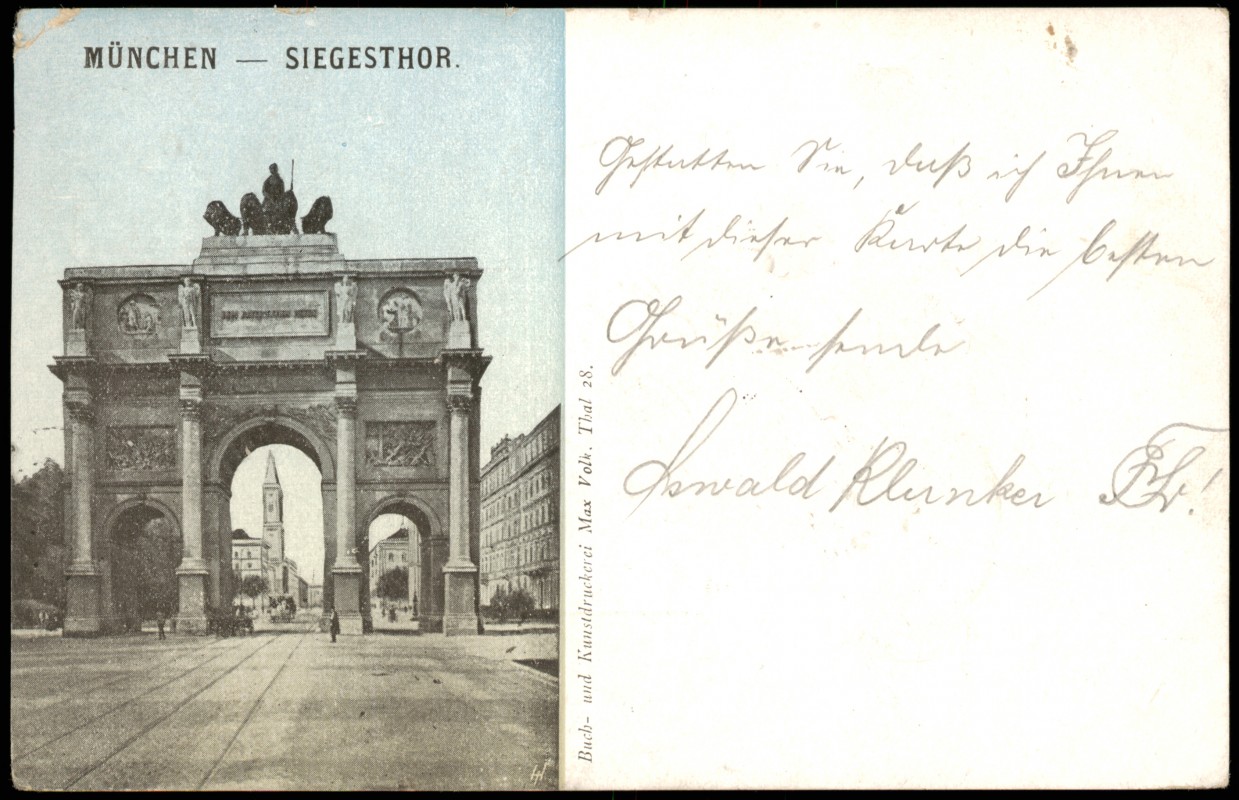 MÜNCHEN — SIEGESTHOR.
DEM BAYERISCHEN HEERE
Gestatten Sie, daß ich Ihnen
mit dieser Karte die besten
Grüße sende
Oswald Klunker
Buch- und Kunstdruckerei Max Volk. Thal 28.